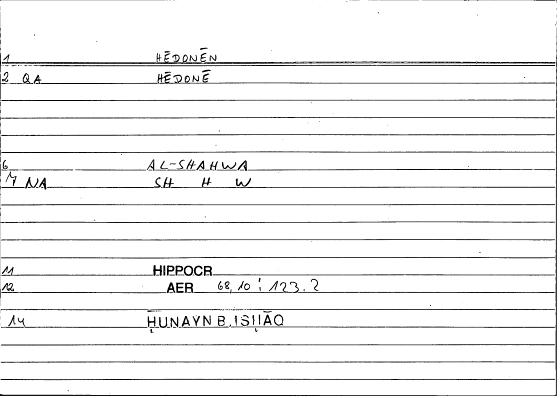 1 HĒDONĒN
2 QA HĒDONĒ
6 AL-SHAHWA
7 NA SH H W
11 HIPPOCR
12 AER 68,10 : 123.2
14 ḤUNAYN B. ISḤĀQ